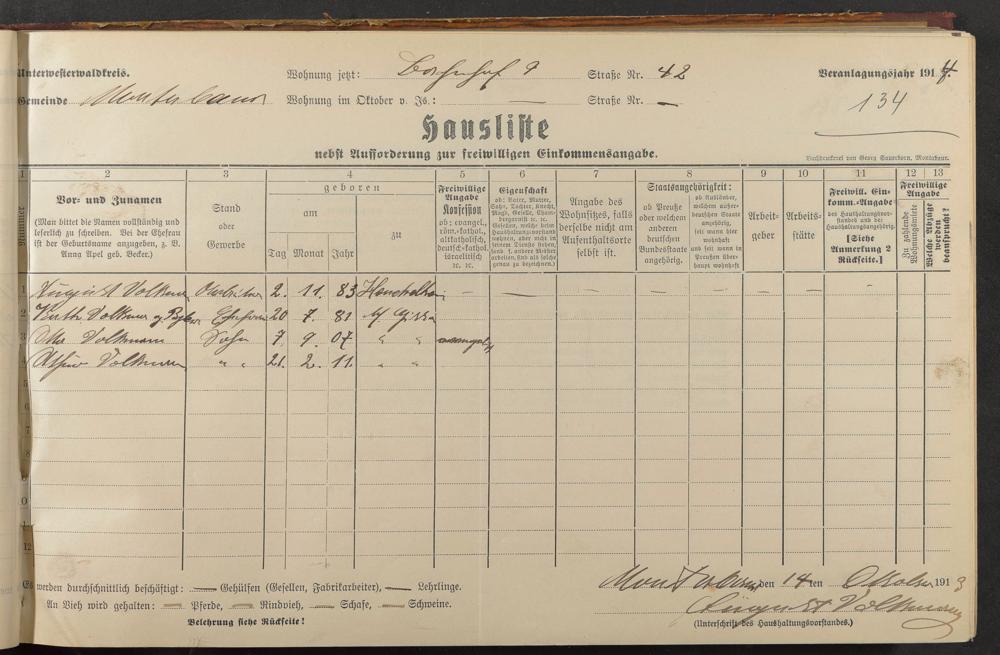 Unterwesterwaldkreis.
Wohnung jetzt: Bahnhof Straße Nr. 42
Veranlagungsjahr 1914.
Gemeinde Montabaur Wohnung im Oktober v. Js.: — Straße Nr. —
134
Hausliste
nebst Aufforderung zur freiwilligen Einkommensangabe.
Buchdruckerei von Georg Sauerborn, Montabaur.
1 2 3 4 5 6 7 8 9 10 11 12 13
Nummer
Vor- und Zunamen
(Man bittet die Namen vollständig und
leserlich zu schreiben. Bei der Ehefrau
ist der Geburtsname anzugeben, z. B.
Anna Apel geb. Becker.)
Stand
oder
Gewerbe
geboren
am
zu
Tag Monat Jahr
Freiwillige
Angabe
Konfession
ob: evangel.,
röm.-kathol.,
altkatholisch,
deutsch-kathol.
israelitisch
ꝛc. ꝛc.
Eigenschaft
ob: Vater, Mutter,
Sohn, Tochter, Knecht,
Magd, Geselle, Cham-
bregarnist ꝛc. ꝛc.
Gesellen, welche beim
Haushaltungsvorstand
wohnen, aber nicht in
seinem Dienste stehen,
sond. f. andere Meister
arbeiten, sind als solche
genau zu bezeichnen.)
Angabe des
Wohnsitzes, falls
derselbe nicht am
Aufenthaltsorte
selbst ist.
Staatsangehörigkeit:
ob Preuße
oder welchem
anderen
deutschen
Bundesstaate
angehörig.
ob Ausländer,
welchem außer-
deutschen Staate
angehörig,
seit wann hier
wohnhaft
und seit wann in
Preußen über-
haupt wohnhaft
Arbeit-
geber
Arbeits-
stätte
Freiwill. Ein-
komm.-Angabe
des Haushaltungsvor-
standes und der
Haushaltungsangehörig.
[Siehe
Anmerkung 2
Rückseite.]
Freiwillige
Angabe
Zu zahlende
Wohnungsmiete
Welche Abzüge
werden
beansprucht?
1 August Volkmann 2. 11. 83 — — — — — — —
2 Kath. Volkmann g. Ehefrau 20 7. 81
3 Otto Volkmann Sohn 7. 9. 07 " "
4 Volkmann " " 21. 2. 11. " "
5
6
7
8
9
10
11
12
Es werden durchschnittlich beschäftigt: — Gehülfen (Gesellen, Fabrikarbeiter), — Lehrlinge.
An Vieh wird gehalten: — Pferde, — Rindvieh, — Schafe, — Schweine.
Belehrung siehe Rückseite!
Montabaur den 14ten Oktober 1913
August Volkmann
(Unterschrift des Haushaltungsvorstandes.)